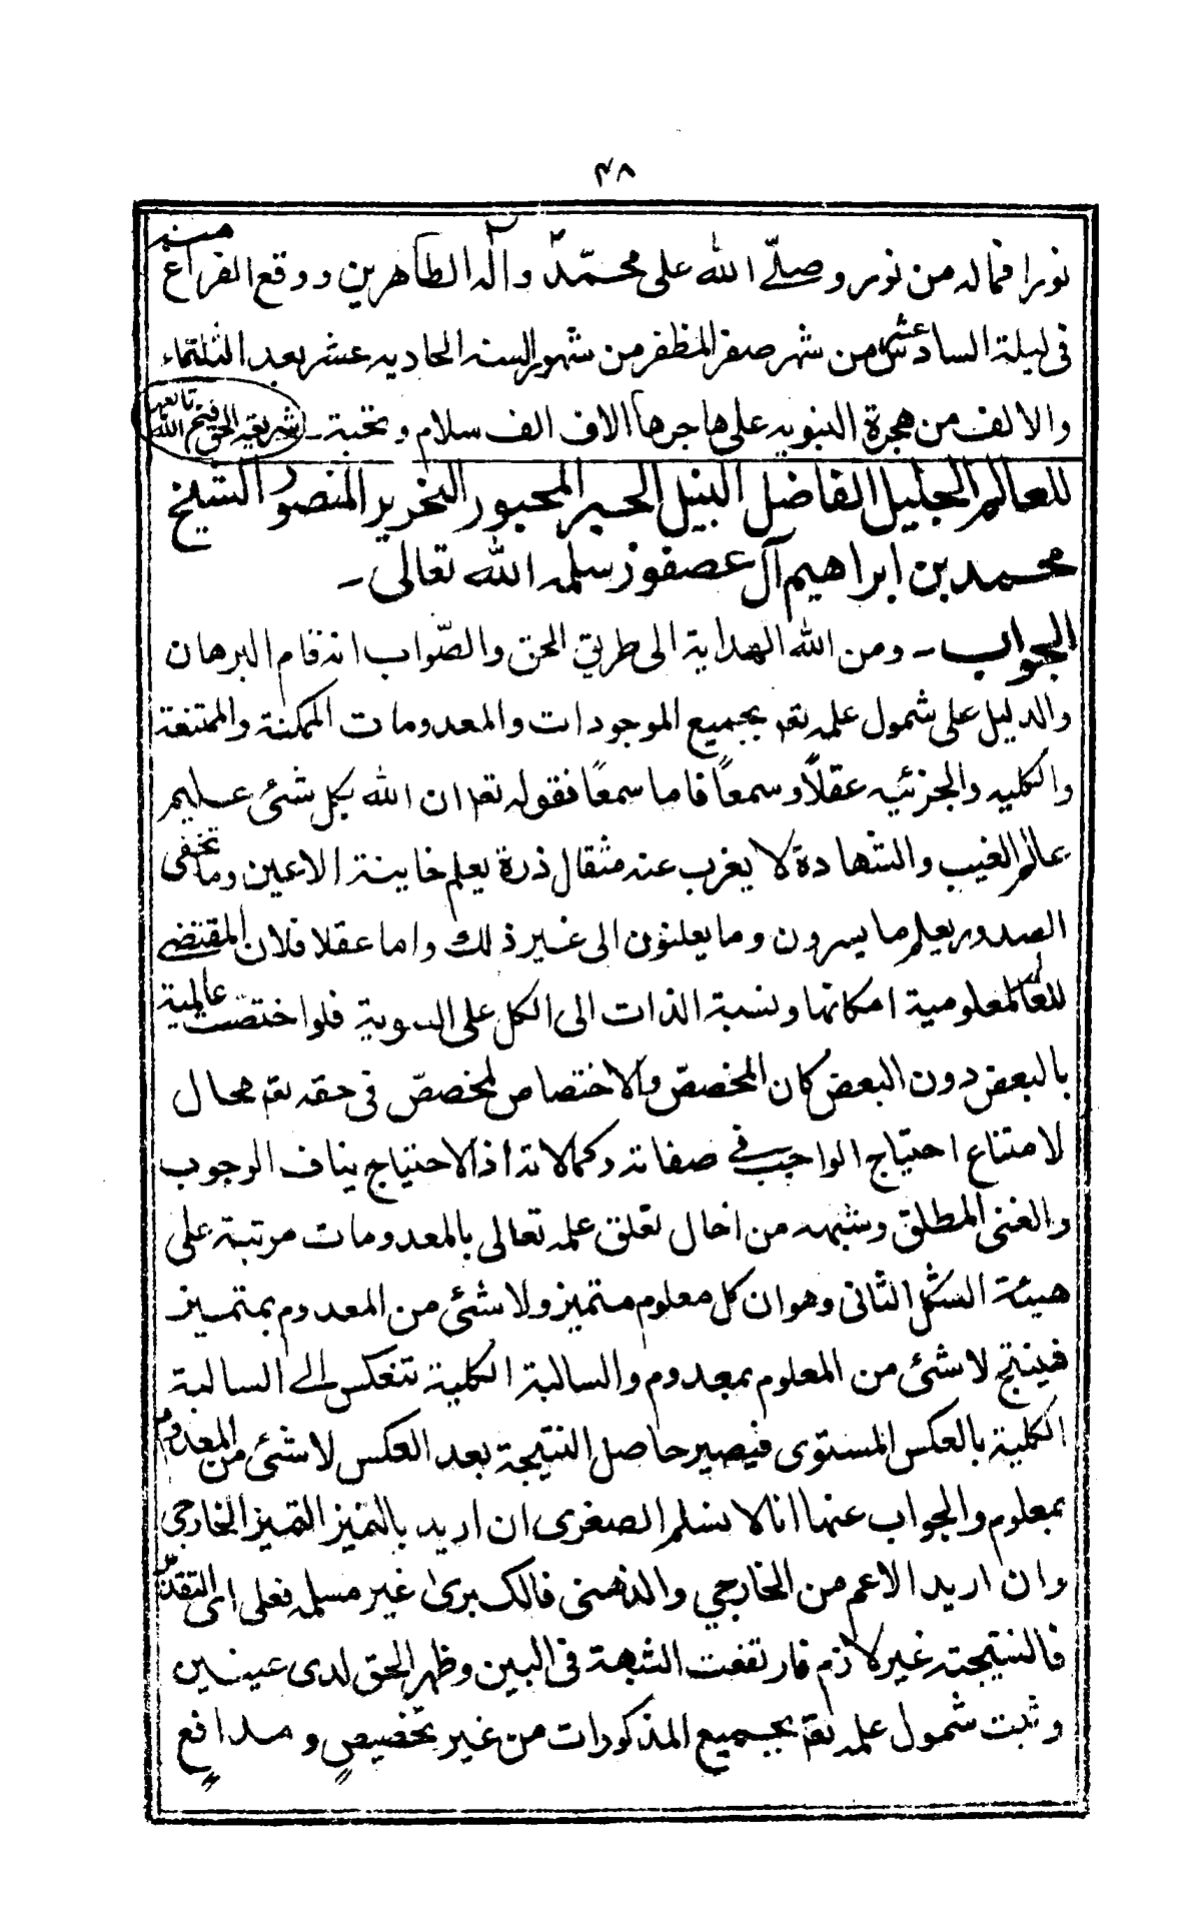 ۴۸
نورا فماله من نور وصلّے الله على محمّد وآله الطاهرين ووقع الفراغ منه
فى ليلة السادس عشر من شهر صفر المظفر من شهور السنه الحاديه عشر بعد الثلثماء
والالف من هجرة النبويه على هاجرها الاف الف سلام وتحية ـ شريعة الحق فتح الله
للعالم الجليل الفاضل النبيل الحبر المحبور النحرير المنصور الشيخ
محمد بن ابراهيم آل عصفور سلمه الله تعالى ـ
الجواب ـ ومن الله الهداية الى طريق الحق والصّواب انه قام البرهان
والدليل على شمول علمه تعم بجميع الموجودات والمعدومات الممكنة والممتنعة
والكليه والجزئيه عقلاً وسمعاً فاما سمعاً فقوله تعم ان الله بكل شئ عليم
عالم الغيب والشهادة لا يغرب عنه مثقال ذرة يعلم خاينة الاعين وما تخفى
الصدور يعلم ما يسرون وما يعلنون الى غير ذلك واما عقلا فلان المقتضے
للعالمعلومية امكانها ونسبة الذات الى الكل على السوية فلو اختصّت عالمية
بالبعض دون البعض كان المخصصّ والاختصاص لمخصصّ فى حقه تعم محال
لامتناع احتياج الواجب فے صفاته وكمالاته اذ الاحتياج يناف الوجوب
والغنى المطلق وشبهه من احال تعلق علمه تعالى بالمعدومات مرتبة على
هيئة الشكل الثانى وهو ان كل معلوم متميز ولا شئ من المعدوم بمتميز
فينتج لا شئ من المعلوم بمعدوم والسالبة الكلية تنعكس الے السالبة
الكلية بالعكس المستوى فيصير حاصل النتيجة بعد العكس لا شئ من المعدوم
بمعلوم والجواب عنها انا لا نسلم الصغرى ان اريد بالتميز التميز الخارجى
وان اريد الاعم من الخارجي والذهنى فالكبرىٰ غير مسلمه فعلى اى التقديرين
فالنتيجته غير لازم فارتفعت الشبهة فى البين وظهر الحق لدى عينين
وثبت شمول علمه تعم بجميع المذكورات من غير تخصيصٍ ومدافع